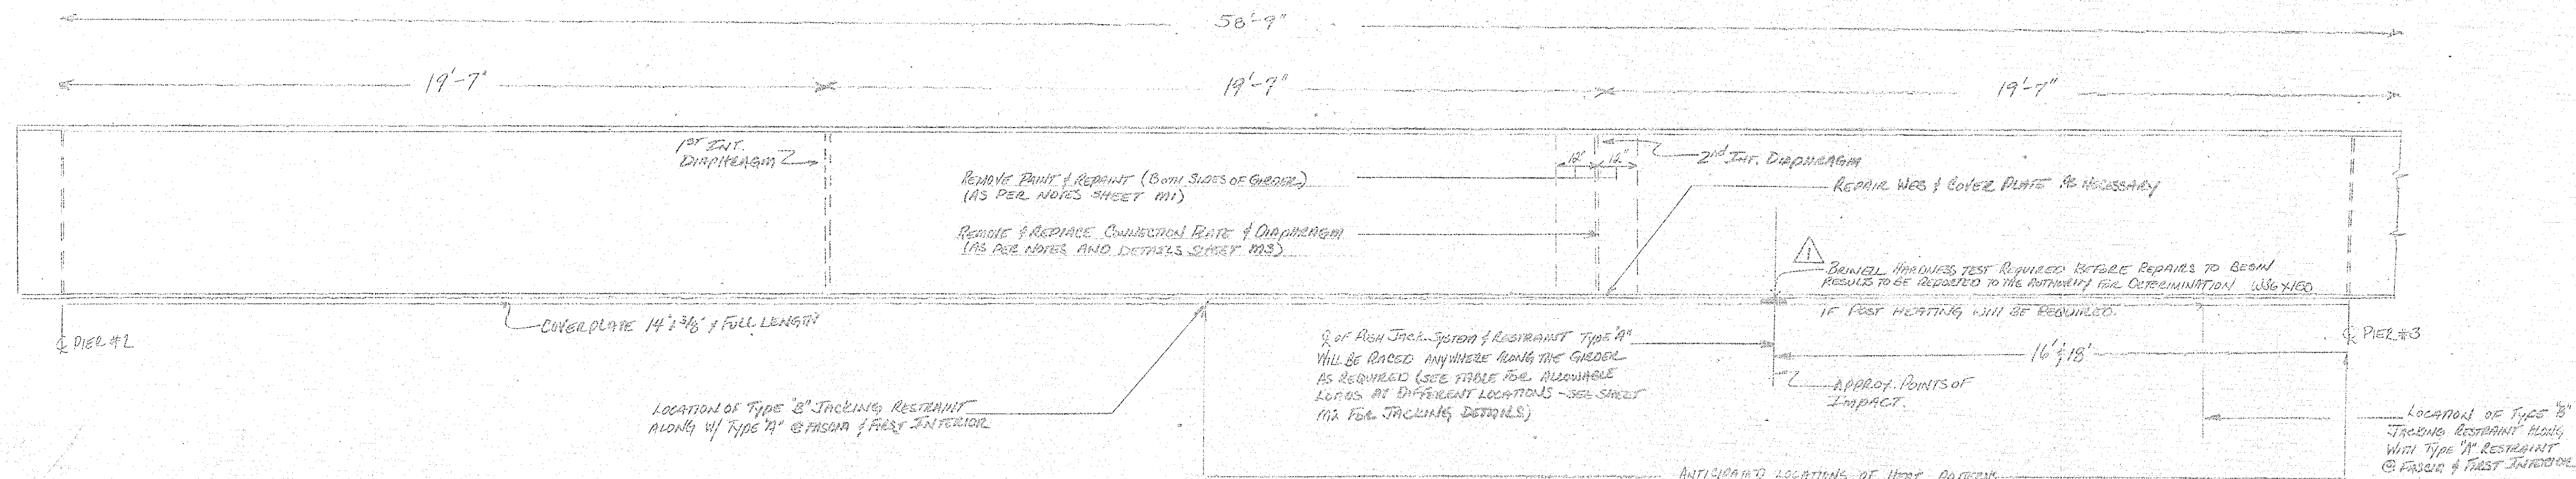 58'-9"
19'-7"
19'-7"
19'-7"
1ST INT.
DIAPHRAGM
12"
12"
2nd INT. DIAPHRAGM
REMOVE PAINT & REPAINT (BOTH SIDES OF GIRDER)
(AS PER NOTES SHEET M1)
REPAIR WEB & COVER PLATE AS NECESSARY
REMOVE & REPLACE CONNECTION PLATE & DIAPHRAGM
(AS PER NOTES AND DETAILS SHEET M3)
1
BRINELL HARDNESS TEST REQUIRED BEFORE REPAIRS TO BEGIN
RESULTS TO BE REPORTED TO THE AUTHORITY FOR DETERMINATION
IF POST HEATING WILL BE REQUIRED.
W36X160
COVERPLATE 14" x 3/8" x FULL LENGTH
℄ PIER #2
℄ OF PUSH JACK SYSTEM & RESTRAINT TYPE "A"
WILL BE PLACED ANYWHERE ALONG THE GIRDER
AS REQUIRED (SEE TABLE FOR ALLOWABLE
LOADS AT DIFFERENT LOCATIONS - SEE SHEET
M2 FOR JACKING DETAILS)
16' & 18'
℄ PIER #3
APPROX. POINTS OF
IMPACT.
LOCATION OF TYPE "B" JACKING RESTRAINT
ALONG W/ TYPE "A" @ FASCIA & FIRST INTERIOR
LOCATION OF TYPE "B"
JACKING RESTRAINT ALONG
WITH TYPE "A" RESTRAINT
@ FASCIA & FIRST INTERIOR
ANTICIPATED LOCATIONS OF HEAT PATTERNS